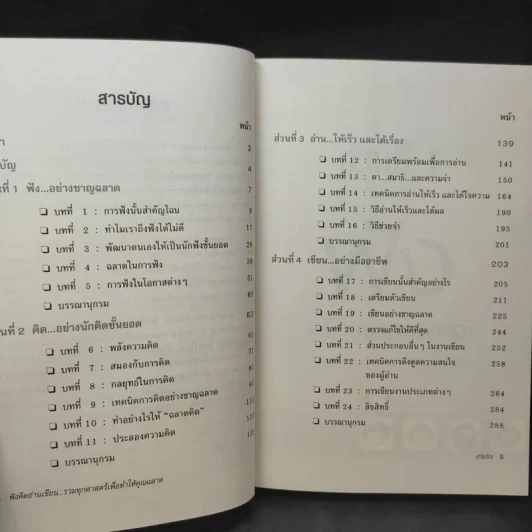 สารบัญ
หน้า
3
4
ที่ 1 ฟัง...อย่างชาญฉลาด
❑ บทที่ 1 : การฟังนั้นสำคัญไฉน
❑ บทที่ 2 : ทำไมเราถึงฟังได้ไม่ดี
❑ บทที่ 3 : พัฒนาตนเองให้เป็นนักฟังชั้นยอด
❑ บทที่ 4 : ฉลาดในการฟัง
❑ บทที่ 5 : การฟังในโอกาสต่างๆ
❑ บรรณานุกรม 61
นที่ 2 คิด...อย่างนักคิดชั้นยอด 63
❑ บทที่ 6 : พลังความคิด
❑ บทที่ 7 : สมองกับการคิด
❑ บทที่ 8 : กลยุทธ์ในการคิด
❑ บทที่ 9 : เทคนิคการคิดอย่างชาญฉลาด
❑ บทที่ 10 : ทำอย่างไรให้ “ฉลาดคิด”
❑ บทที่ 11 : ประลองความคิด
❑ บรรณานุกรม
ฟังคิดอ่านเขียน...รวมทุกศาสตร์เพื่อทำให้คุณฉลาด
หน้า
ส่วนที่ 3 อ่าน...ให้เร็ว และได้เรื่อง 139
❑ บทที่ 12 : การเตรียมพร้อมเพื่อการอ่าน 141
❑ บทที่ 13 : ตา...สมาธิ...และความจำ 150
❑ บทที่ 14 : เทคนิคการอ่านให้เร็ว และได้ใจความ 164
❑ บทที่ 15 : วิธีอ่านให้เร็วและได้ผล 190
❑ บทที่ 16 : วิธีช่วยจำ 195
❑ บรรณานุกรม 201
ส่วนที่ 4 เขียน...อย่างมืออาชีพ 203
❑ บทที่ 17 : การเขียนนั้นสำคัญอย่างไร 205
❑ บทที่ 18 : เตรียมตัวเขียน 211
❑ บทที่ 19 : เขียนอย่างชาญฉลาด 225
❑ บทที่ 20 : ตรวจแก้ไขให้ดีที่สุด 244
❑ บทที่ 21 : ส่วนประกอบอื่นๆ ในงานเขียน 252
❑ บทที่ 22 : เทคนิคการดึงดูดความสนใจ 258
ของผู้อ่าน
❑ บทที่ 23 : การเขียนงานประเภทต่างๆ 264
❑ บทที่ 24 : ลิขสิทธิ์ 284
❑ บรรณานุกรม 288
สารบัญ 5